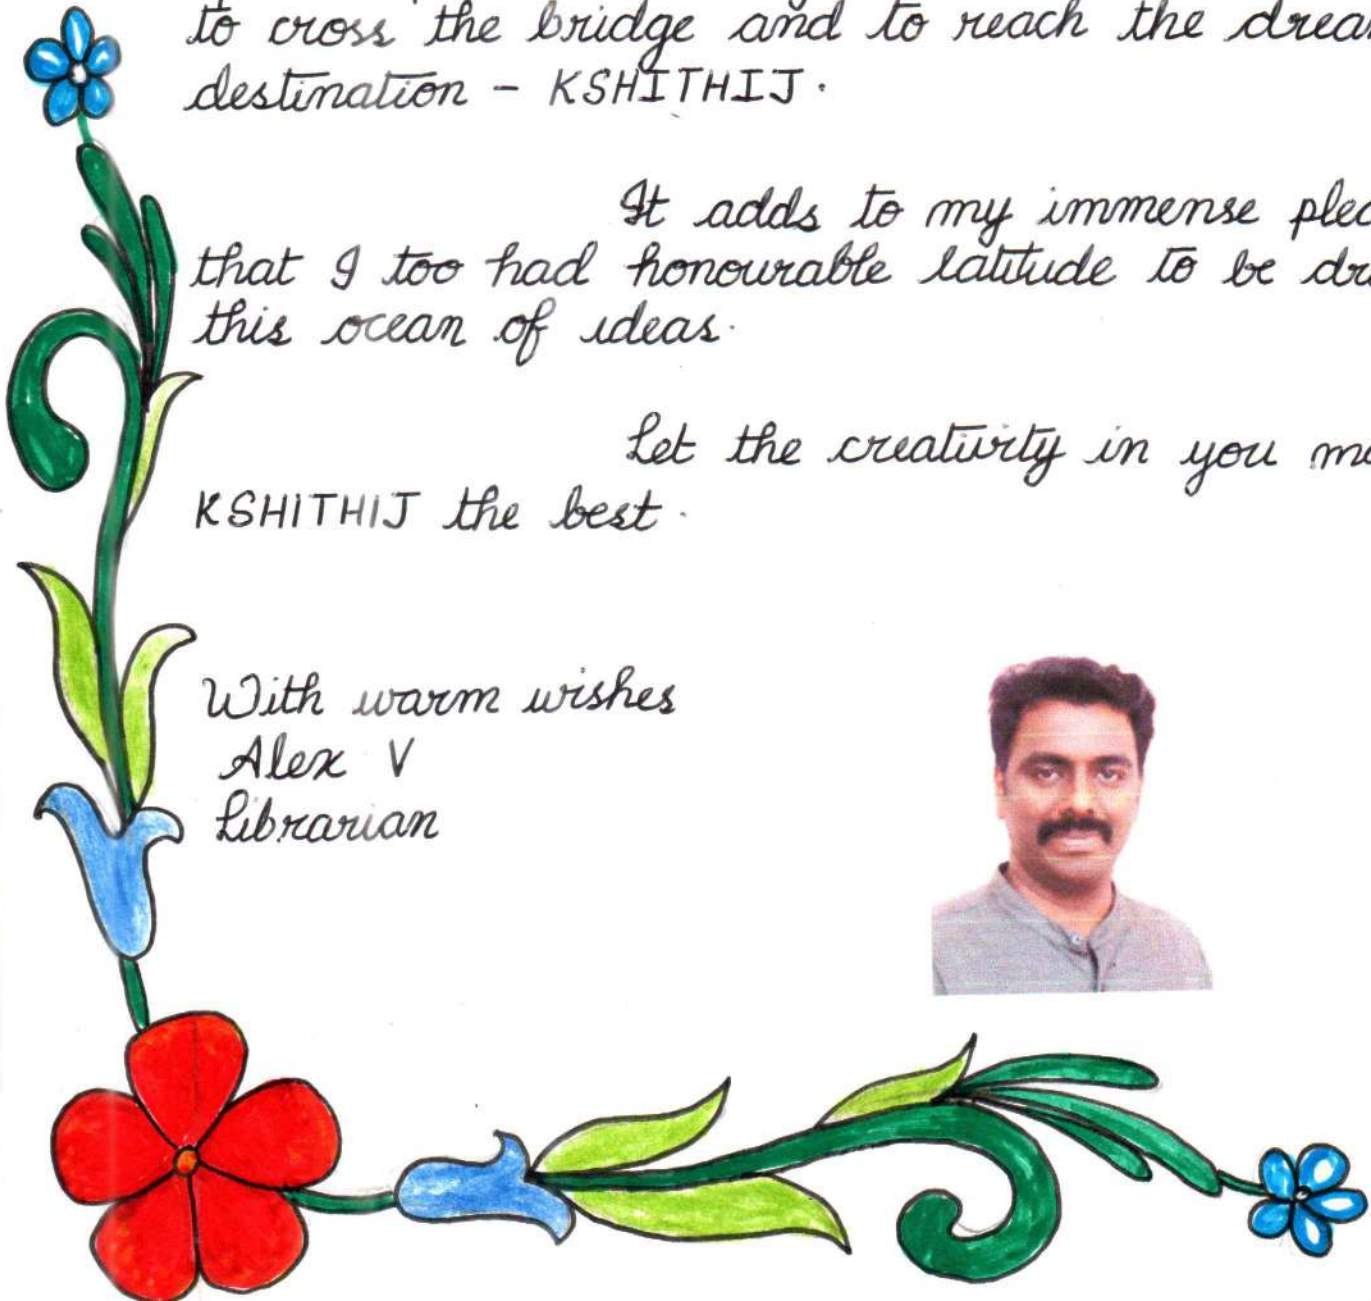 to cross the bridge and to reach the
destination - KSHITHIJ.
It adds to my immense
that I too had honourable latitude to be
this ocean of ideas.
Let the creativity in you
KSHITHIJ the best.
With warm wishes
Alex V
Librarian